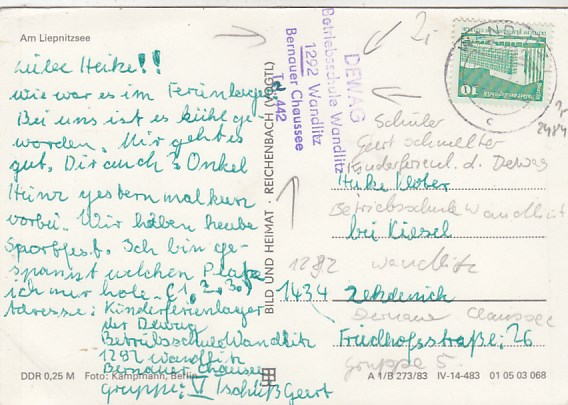 Am Liepnitzsee
Liebe Heike!!
wie war es im Ferienlager
Bei uns ist es kühl ge
worden. Mir geht es
gut. Dir auch? Onkel
Heinz gestern mal kurz
vorbei. Wir haben heute
Sportfest. Ich bin ge-
spannt welchen Platz
ich mir hole. (1., 2., 3.)
Adresse: Kinderferienlager
der Dewag
Betriebsschule Wandlitz
1292 Wandlitz
Bernauer Chaussee
Gruppe: V Geert
DDR 0,25 M Foto: Kampmann, Berlin
BILD UND HEIMAT REICHENBACH (VOGTL)
DEWAG
Betriebsschule Wandlitz
1292 Wandlitz
Bernauer Chaussee
Tel. 442
10
Schüler
Geert Schmelter
Kinderferienl. d. Dewag
Betriebsschule Wandlitz
1292 Wandlitz
Bernauer Chaussee
Gruppe 5.
Heike Klober
bei Kiesel
1434 Zehdenick
Friedhofsstraße: 26
A 1/B 273/83 IV-14-483 01 05 03 068